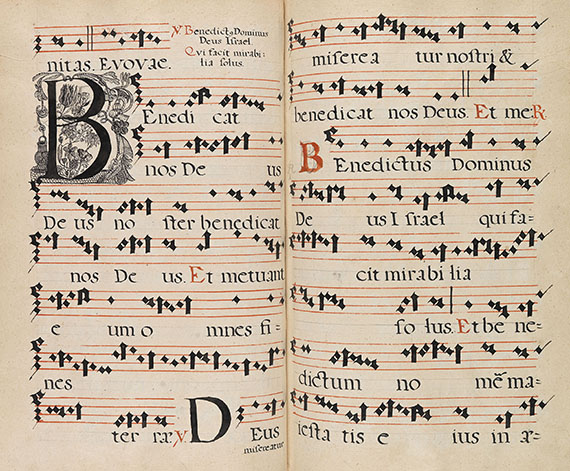 nitas. Evovae.
℣ Benedict9 Dominus
Deus Israel.
Qui facit mirabi-
lia solus.
BEnedi cat
nos De us
De us no ster benedicat
nos De us. Et metuant
e um o mnes fi-
nes
ter ræ ℣ DEus
misereatur
miserea tur nostri &
benedicat nos Deus. Et me: R
BEnedictus Dominus
De us Israel qui fa=
cit mirabi lia
so lus. Et be ne=
dictum no mẽ ma=
iesta tis e ius in æ=